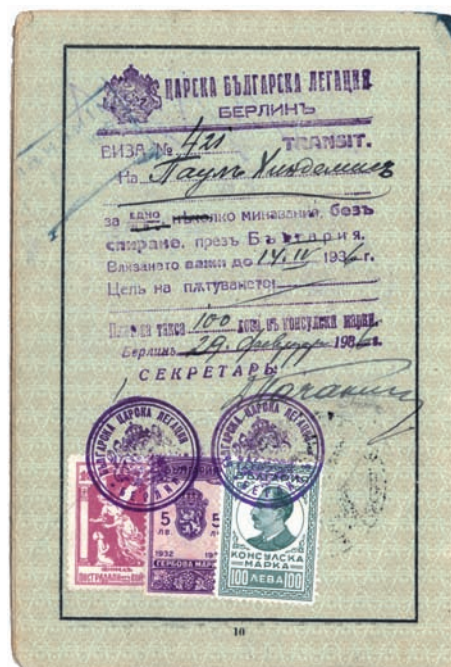 ЦАРСКА БЪЛГАРСКА ЛЕГАЦИЯ
БЕРЛИНЪ
ВИЗА № 421 TRANSIT.
На Паулъ Хиндемитъ
за едно нѣколко минавания, безъ
спиране, презъ България.
Влизането важи до 14.IV 1936 г.
Цель на пѫтуването:
такса 100 лева въ консулски марки.
Берлинъ 29. февруари 1936 г.
СЕКРЕТАРЬ:
БЪЛГАРСКА ЦАРСКА ЛЕГАЦИЯ
БЕРЛИНЪ
БЪЛГАРСКА ЦАРСКА ЛЕГАЦИЯ
БЕРЛИНЪ
5 5
ЛВ. ЛВ.
1932
ГЕРБОВА МАРКА
БЪЛГАРИЯ
КОНСУЛСКА
МАРКА
100 ЛЕВА 100
10